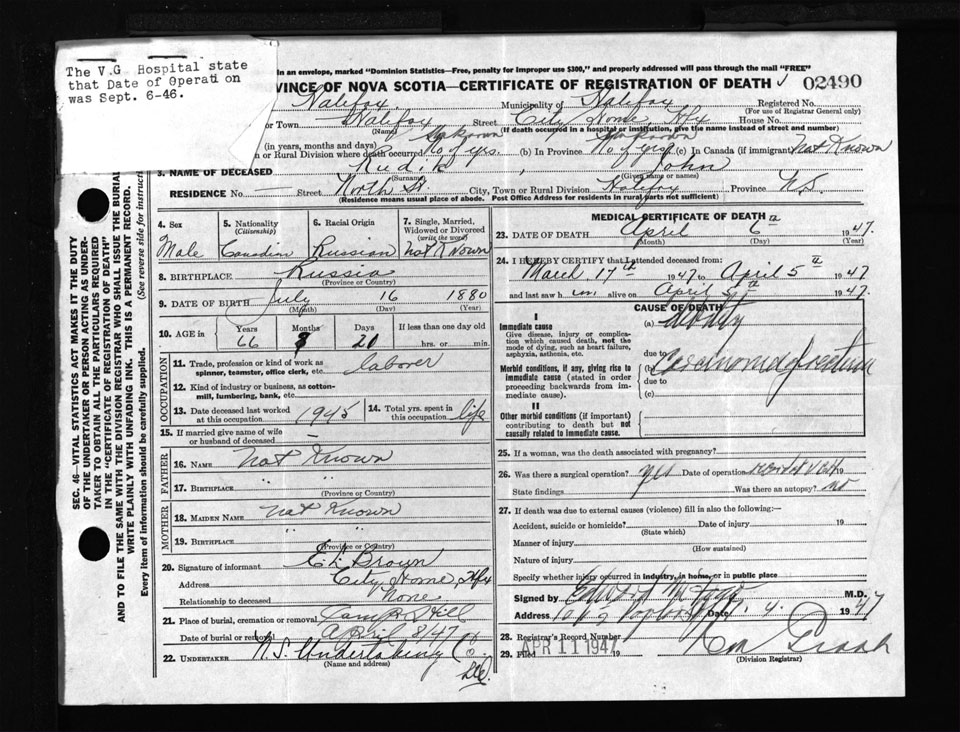 The V.G Hospital state
that Date of Operati on
was Sept. 6-46.
in an envelope, marked "Dominion Statistics—Free, penalty for improper use $300," and properly addressed will pass through the mail "FREE"
VINCE OF NOVA SCOTIA—CERTIFICATE OF REGISTRATION OF DEATH 02490
Halifax Municipality of Halifax Registered No.
(For use of Registrar General only)
or Town Halifax Street City Home, Hfx House No.
(Name) (If death occurred in a hospital or institution, give the name instead of street and number)
(in years, months and days) Unknown Unknown
n or Rural Division where death occurred No of yrs. (b) In Province No of yrs (c) In Canada (if immigrant) Not Known
3. NAME OF DECEASED John
(Surname) (Given name or names)
RESIDENCE No. — Street North St City, Town or Rural Division Halifax Province N.S.
(Residence means usual place of abode. Post Office Address for residents in rural parts not sufficient)
SEC. 46—VITAL STATISTICS ACT MAKES IT THE DUTY
OF THE UNDERTAKER OR PERSON ACTING AS UNDER-
TAKER TO OBTAIN ALL THE PARTICULARS REQUIRED
IN THE "CERTIFICATE OF REGISTRATION OF DEATH"
AND TO FILE THE SAME WITH THE DIVISION REGISTRAR WHO SHALL ISSUE THE BURIAL
WRITE PLAINLY WITH UNFADING INK. THIS IS A PERMANENT RECORD.
Every item of information should be carefully supplied. (See reverse side for instructi
4. Sex 5. Nationality 6. Racial Origin 7. Single, Married,
(Citizenship) Widowed or Divorced
(write the word)
Male Canadian Russian Not Known
8. BIRTHPLACE Russia
(Province or Country)
9. DATE OF BIRTH July 16 1880
(Month) (Day) (Year)
10. AGE in Years Months Days If less than one day old
66 8 20 hrs. or min.
OCCUPATION
11. Trade, profession or kind of work as laborer
spinner, teamster, office clerk, etc.
12. Kind of industry or business, as cotton-
mill, lumbering, bank, etc.
13. Date deceased last worked 1945 14. Total yrs. spent in life
at this occupation this occupation
15. If married give name of wife
or husband of deceased —
FATHER
16. NAME Not Known
17. BIRTHPLACE " "
(Province or Country)
MOTHER
18. MAIDEN NAME Not Known
19. BIRTHPLACE " "
(Province or Country)
20. Signature of informant E L Brown
Address City Home, Hfx
Relationship to deceased None
21. Place of burial, cremation or removal Camp Hill
Date of burial or removal April 8/47
22. UNDERTAKER N.S. Undertaking Co
(Name and address) Ltd.
MEDICAL CERTIFICATE OF DEATH
23. DATE OF DEATH April 6th 1947.
(Month) (Day) (Year)
24. I HEREBY CERTIFY that I attended deceased from
March 17th 1947 to April 5th 1947
and last saw h im alive on April 5th 1947.
CAUSE OF DEATH
I
Immediate cause (a)
Give disease, injury or complica-
tion which caused death, not the
mode of dying, such as heart failure,
asphyxia, asthenia, etc. due to
Morbid conditions, if any, giving rise to (b) Carcinoma of rectum
immediate cause (stated in order due to
proceeding backwards from im-
mediate cause). (c)
II
Other morbid conditions (if important)
contributing to death but not
causally related to immediate cause.
25. If a woman, was the death associated with pregnancy?
26. Was there a surgical operation? Yes Date of operation 19
State findings Was there an autopsy? no
27. If death was due to external causes (violence) fill in also the following:—
Accident, suicide or homicide? Date of injury 19
(State which)
Manner of injury
(How sustained)
Nature of injury
Specify whether injury occurred in industry, in home, or in public place
Signed by M.D.
Address Date 1947
28. Registrar's Record Number
29. Filed APR 11 1947 19
(Division Registrar)